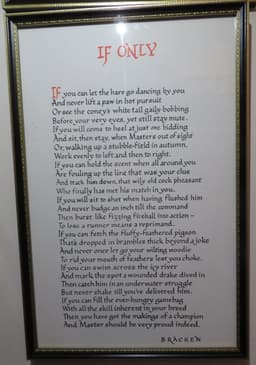 IF ONLY
If you can let the hare go dancing by you
And never lift a paw in hot pursuit
Or see the coney's white tail gaily bobbing
Before your very eyes, yet still stay mute.
If you will come to heel at just one bidding
And sit, then stay, when Master's out of sight
Or, walking up a stubble-field in autumn,
Work evenly to left and then to right.
If you can hold the scent when all around you
Are fouling up the line that was your clue
And track him down, that wily old cock pheasant
Who finally has met his match in you.
If you will sit to shot when having flushed him
And never budge an inch till the command
Then burst like fizzing fireball into action –
To lose a runner means a reprimand.
If you can fetch the fluffy-feathered pigeon
That's dropped in brambles thick beyond a joke
And never once let go your wilting woodie
To rid your mouth of feathers lest you choke.
If you can swim across the icy river
And mark the spot a wounded drake dived in
Then catch him in an underwater struggle
But never shake till you've delivered him.
If you can fill the ever-hungry gamebag
With all the skill inherent in your breed
Then you have got the makings of a champion
And Master should be very proud indeed.
BRACKEN